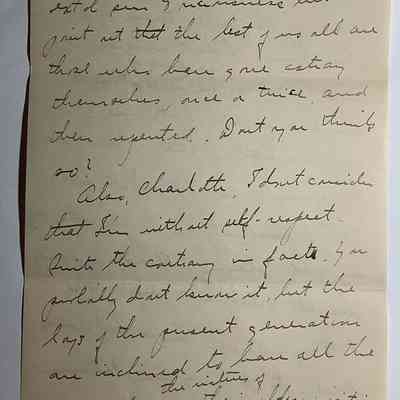 extol sin &
point out that the best of us all are
those who have gone astray
themselves, once or twice, and
then repented. Don't you think
so?
Also, Charlotte, I don't consider
that I'm without self-respect.
Quite the contrary in fact. You
probably don't know it, but the
boys of the present generation
are inclined to have all the
the virtues of